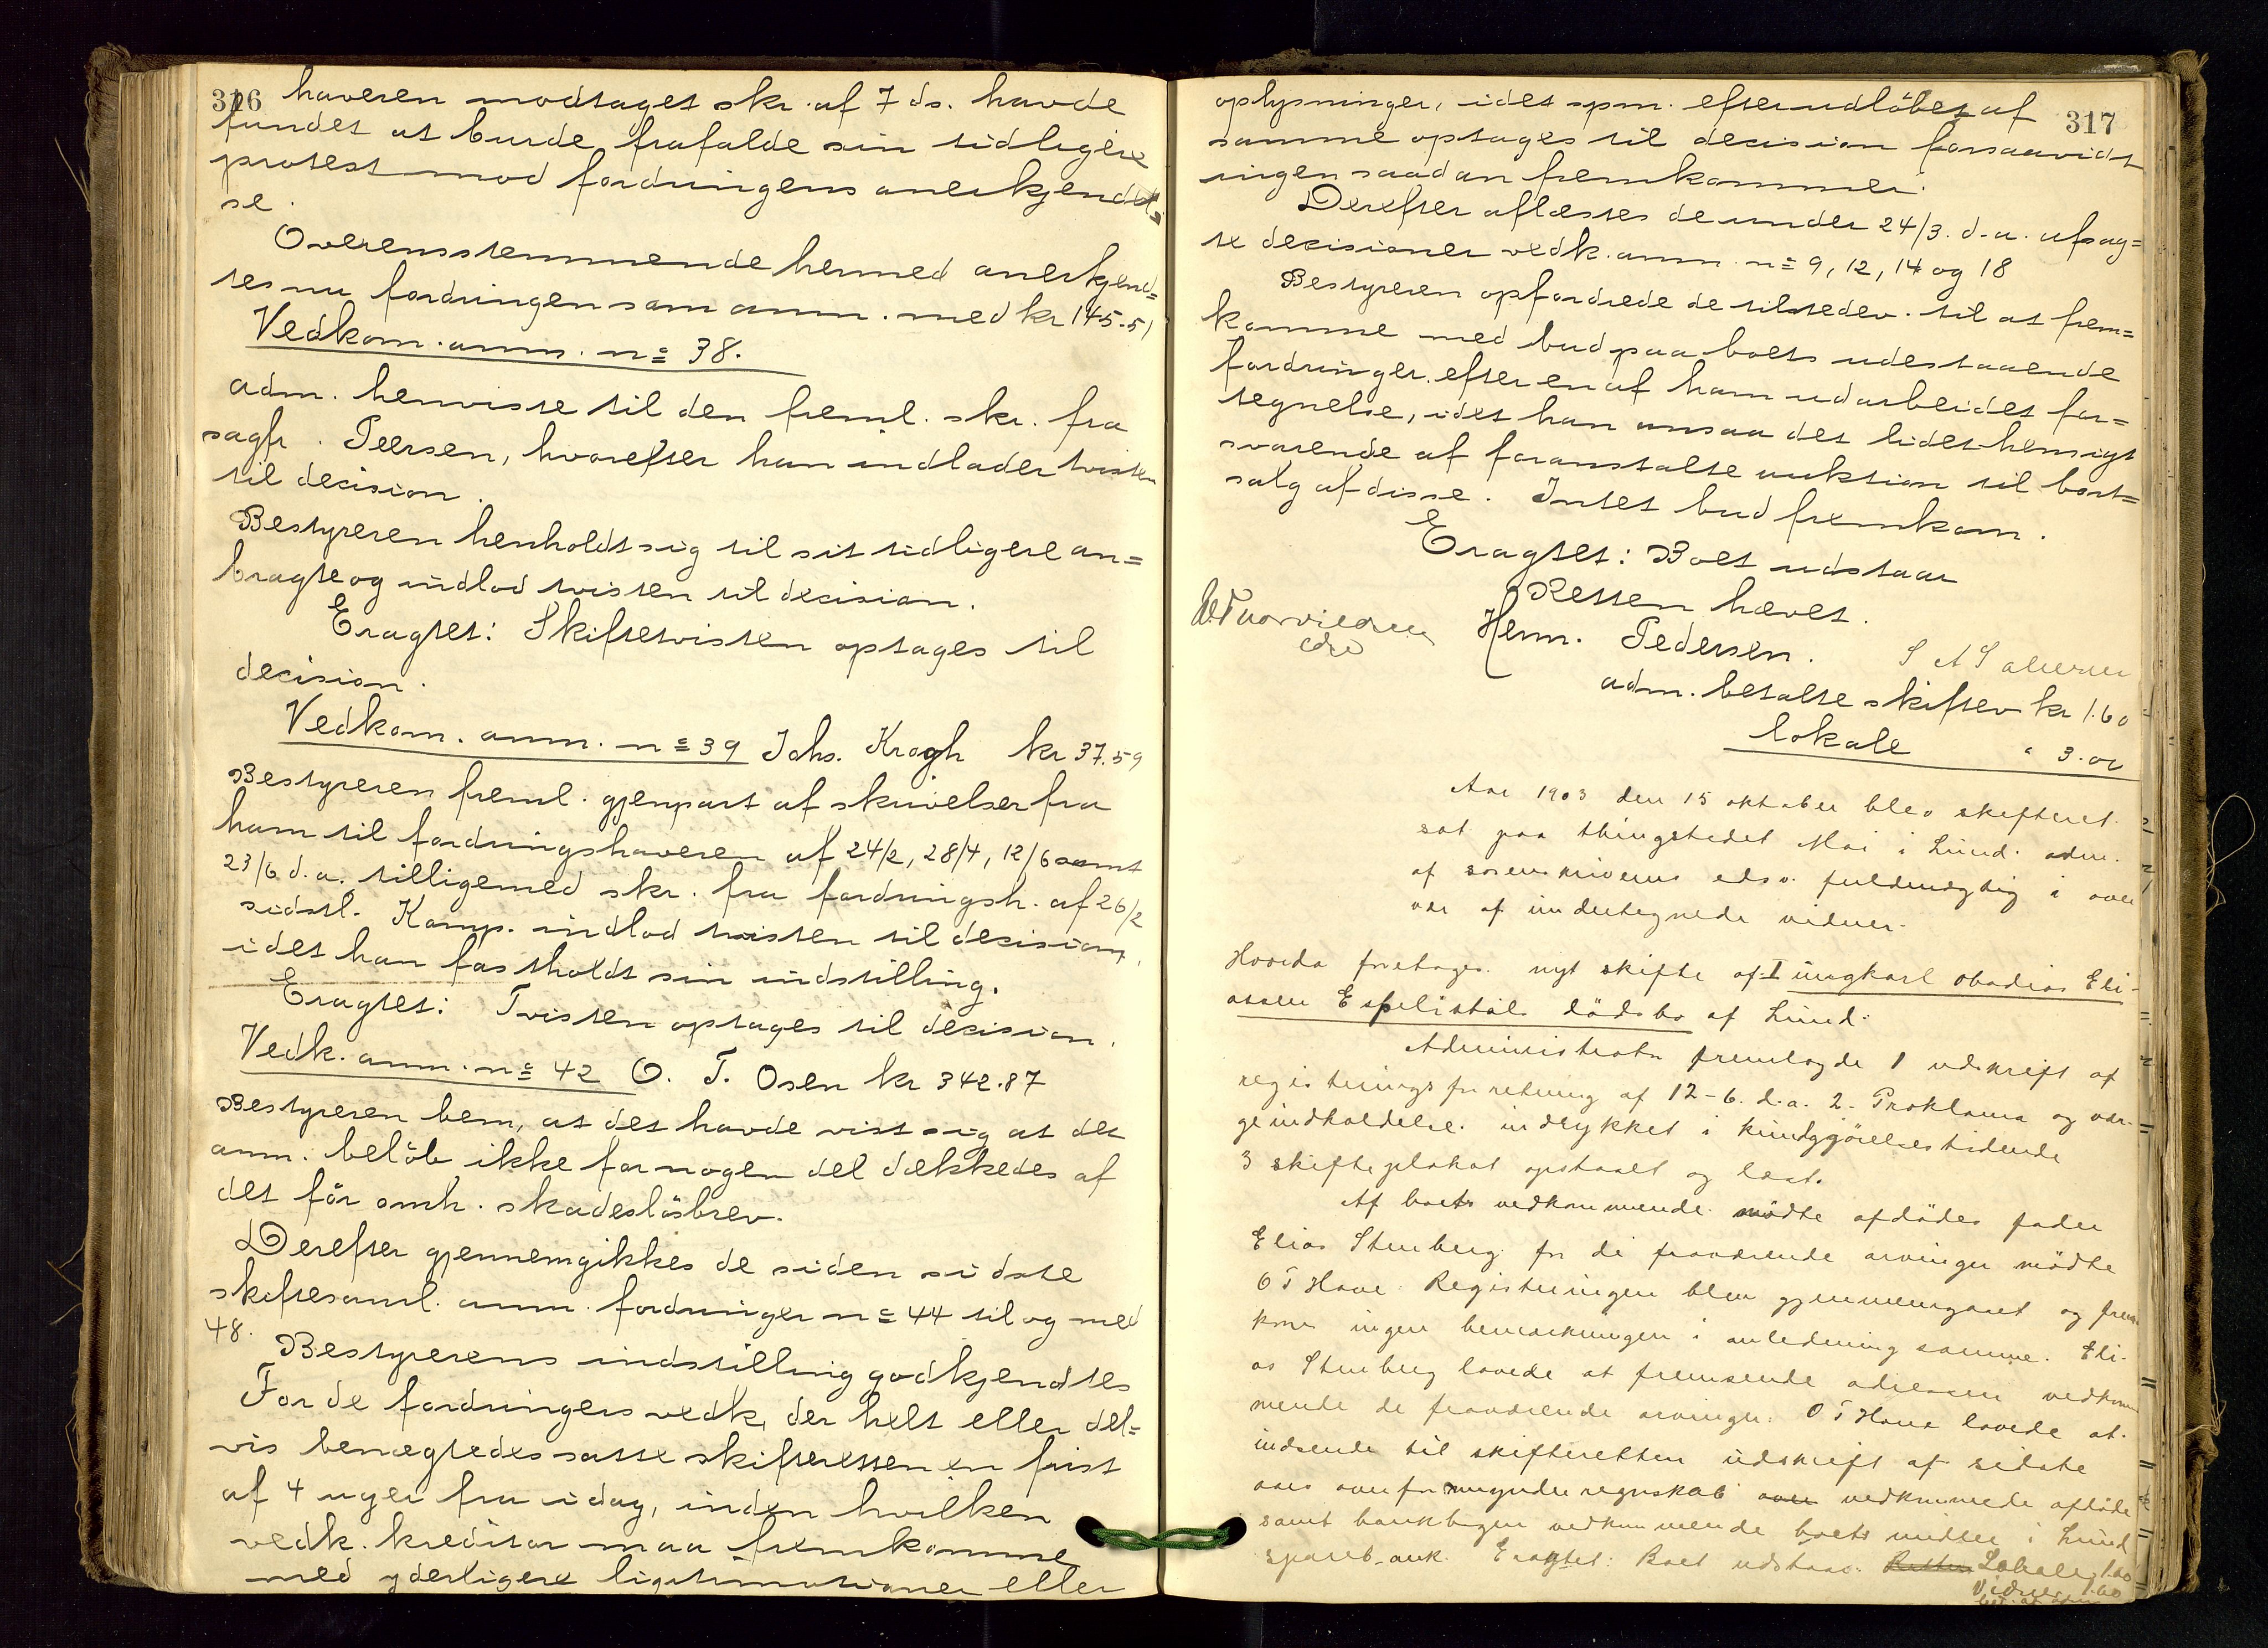 316
haveren modtaget skr. af 7 ds. havde
fundet at burde frafalde sin tidligere
protest mod fordringens anerkjendel=
se.
Overensstemmende hermed anerkjend=
tes nu fordringen som anm. med kr 145.51
Vedkom. anm. no 38.
adm. henviste til den freml. skr. fra
sagfr. Peersen, hvorefter han indlader tvisten
til decision.
Bestyreren henholdt sig til sit tidligere an=
bragte og indlod tvisten til decision.
Eragtet: Skiftetvisten optages til
decision.
Vedkom. anm. no 39 Johs. Krogh kr 37.59
Bestyreren freml. gjenpart af skrivelser fra
ham til fordringshaveren af 24/2, 28/4, 12/6 samt
23/6 d.a. tilligemed skr. fra fordringsh. af 26/2
sidstl. Komp. indlod tvisten til decision,
idet han fastholdt sin indstilling.
Eragtet: Tvisten optages til decision.
Vedk. anm. no 42 O. T. Osen kr 342.87
Bestyreren bem, at det havde vist sig at det
anm. belöb ikke for nogen del dækkedes af
det för omh. skadeslösbrev.
Derefter gjennemgikkes de siden sidste
skiftesaml. anm. fordringer no 44 til og med
48.
Bestyrerens indstilling godkjendtes
For de fordringers vedk, der helt eller del=
vis benægtedes satte skifteretten en frist
af 4 uger fra idag, inden hvilken
vedk. kreditor maa fremkomme
med yderligere legitimationer eller
317
oplysninger, idet spm. efter udlöbet af
samme optages til decision forsaavidt
ingen saadan fremkommer.
Derefter aflæstes de under 24/3. d.a. afsag=
te decisioner vedk. anm. no 9, 12, 14 og 18
Bestyreren opfordrede de tilstedev. til at frem=
komme med bud paa boets udestaaende
fordringer efter en af ham udarbeidet for=
tegnelse, idet han ansaa det lidet hensigt
svarende af foranstalte auktion til bort=
salg af disse. Intet bud fremkom.
Eragtet: Boet udstaar
Retten hævet.
Herm. Pedersen.
adm. betalte skiftev kr 1.60
lokale " 3.00
Aar 1903 den 15 oktober blev skifteret.
sat paa thingstedet Moi i Lund. adm.
af sorenskriverens edsv. fuldmægtig i over
vær af undertegnede vidner.
Hvorda foretoges nyt skifte af: I ungkarl Obadias Eli-
assen Espelistøls dödsbo af Lund.
Administrator fremlagde 1 udskrift af
registreringsforretning af 12-6. d.a. 2. Proklama og var-
geindkaldelse indrykket i kundgjörelsestidende
3 skifteplakat opslaaet og læst.
Af boets vedkommende mödte afdödes fader
Elias Stenberg for de fraværende arvinger mödte
O T Hove. Registreringen blev gjennemgaaet og frem
kom ingen bemærkninger i anledning samme. Eli-
as Stenberg lovede at fremsende adressen vedkom
mende de fraværende arvinger. O T Hove lovede at
indsende til skifteretten udskrift af sidste
aars overformynderregnskab over vedkommende afdöde
samt bankbogen vedkommende boets midler i Lund
spareb-ank. Eragtet: Boet udstaar. Retten Lokale 1.00
Vidner 1.60